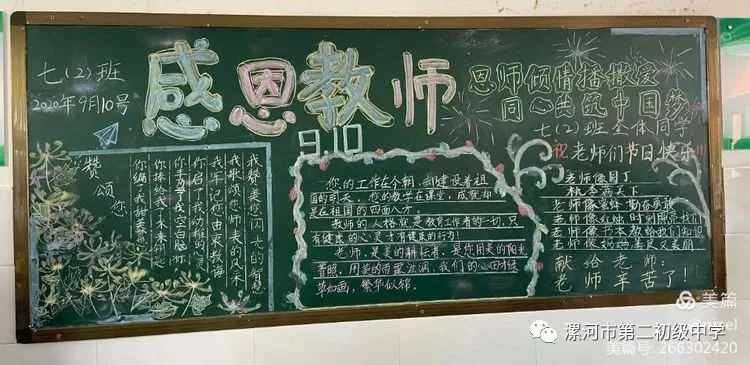 七(2)班
2020年9月10号
感恩教师
9.10
恩师倾情播撒爱
同心共筑中国梦
七(2)班全体同学
祝老师们节日快乐!!!
赞颂您
我赞美您闪光的智慧
我歌颂您师表的风采
我牢记您由衷教诲
你启了我力稚的心
你捧给我了未来
你编了我甜美梦
您的工作在今朝,却建设着祖
国的明天,您的教学在课堂,成就却
是在祖国的四面八方。
教师的人格就是教育工作者的一切,只
有健康的心灵才有健康的行为!
老师,是美的耕耘者,是您用美的阳光
普照,用美的雨露滋润,我们的心田才绿
草如画,繁华似锦。
老师像园丁
桃李满天下
老师像蜜蜂 勤奋勇敢
老师像红烛 时刻照亮我们
老师像书本 教给我们知识
老师像妈妈 善良又美丽
献给老师:
老师辛苦了!
美篇
漯河市第二初级中学
美篇号: 266302420